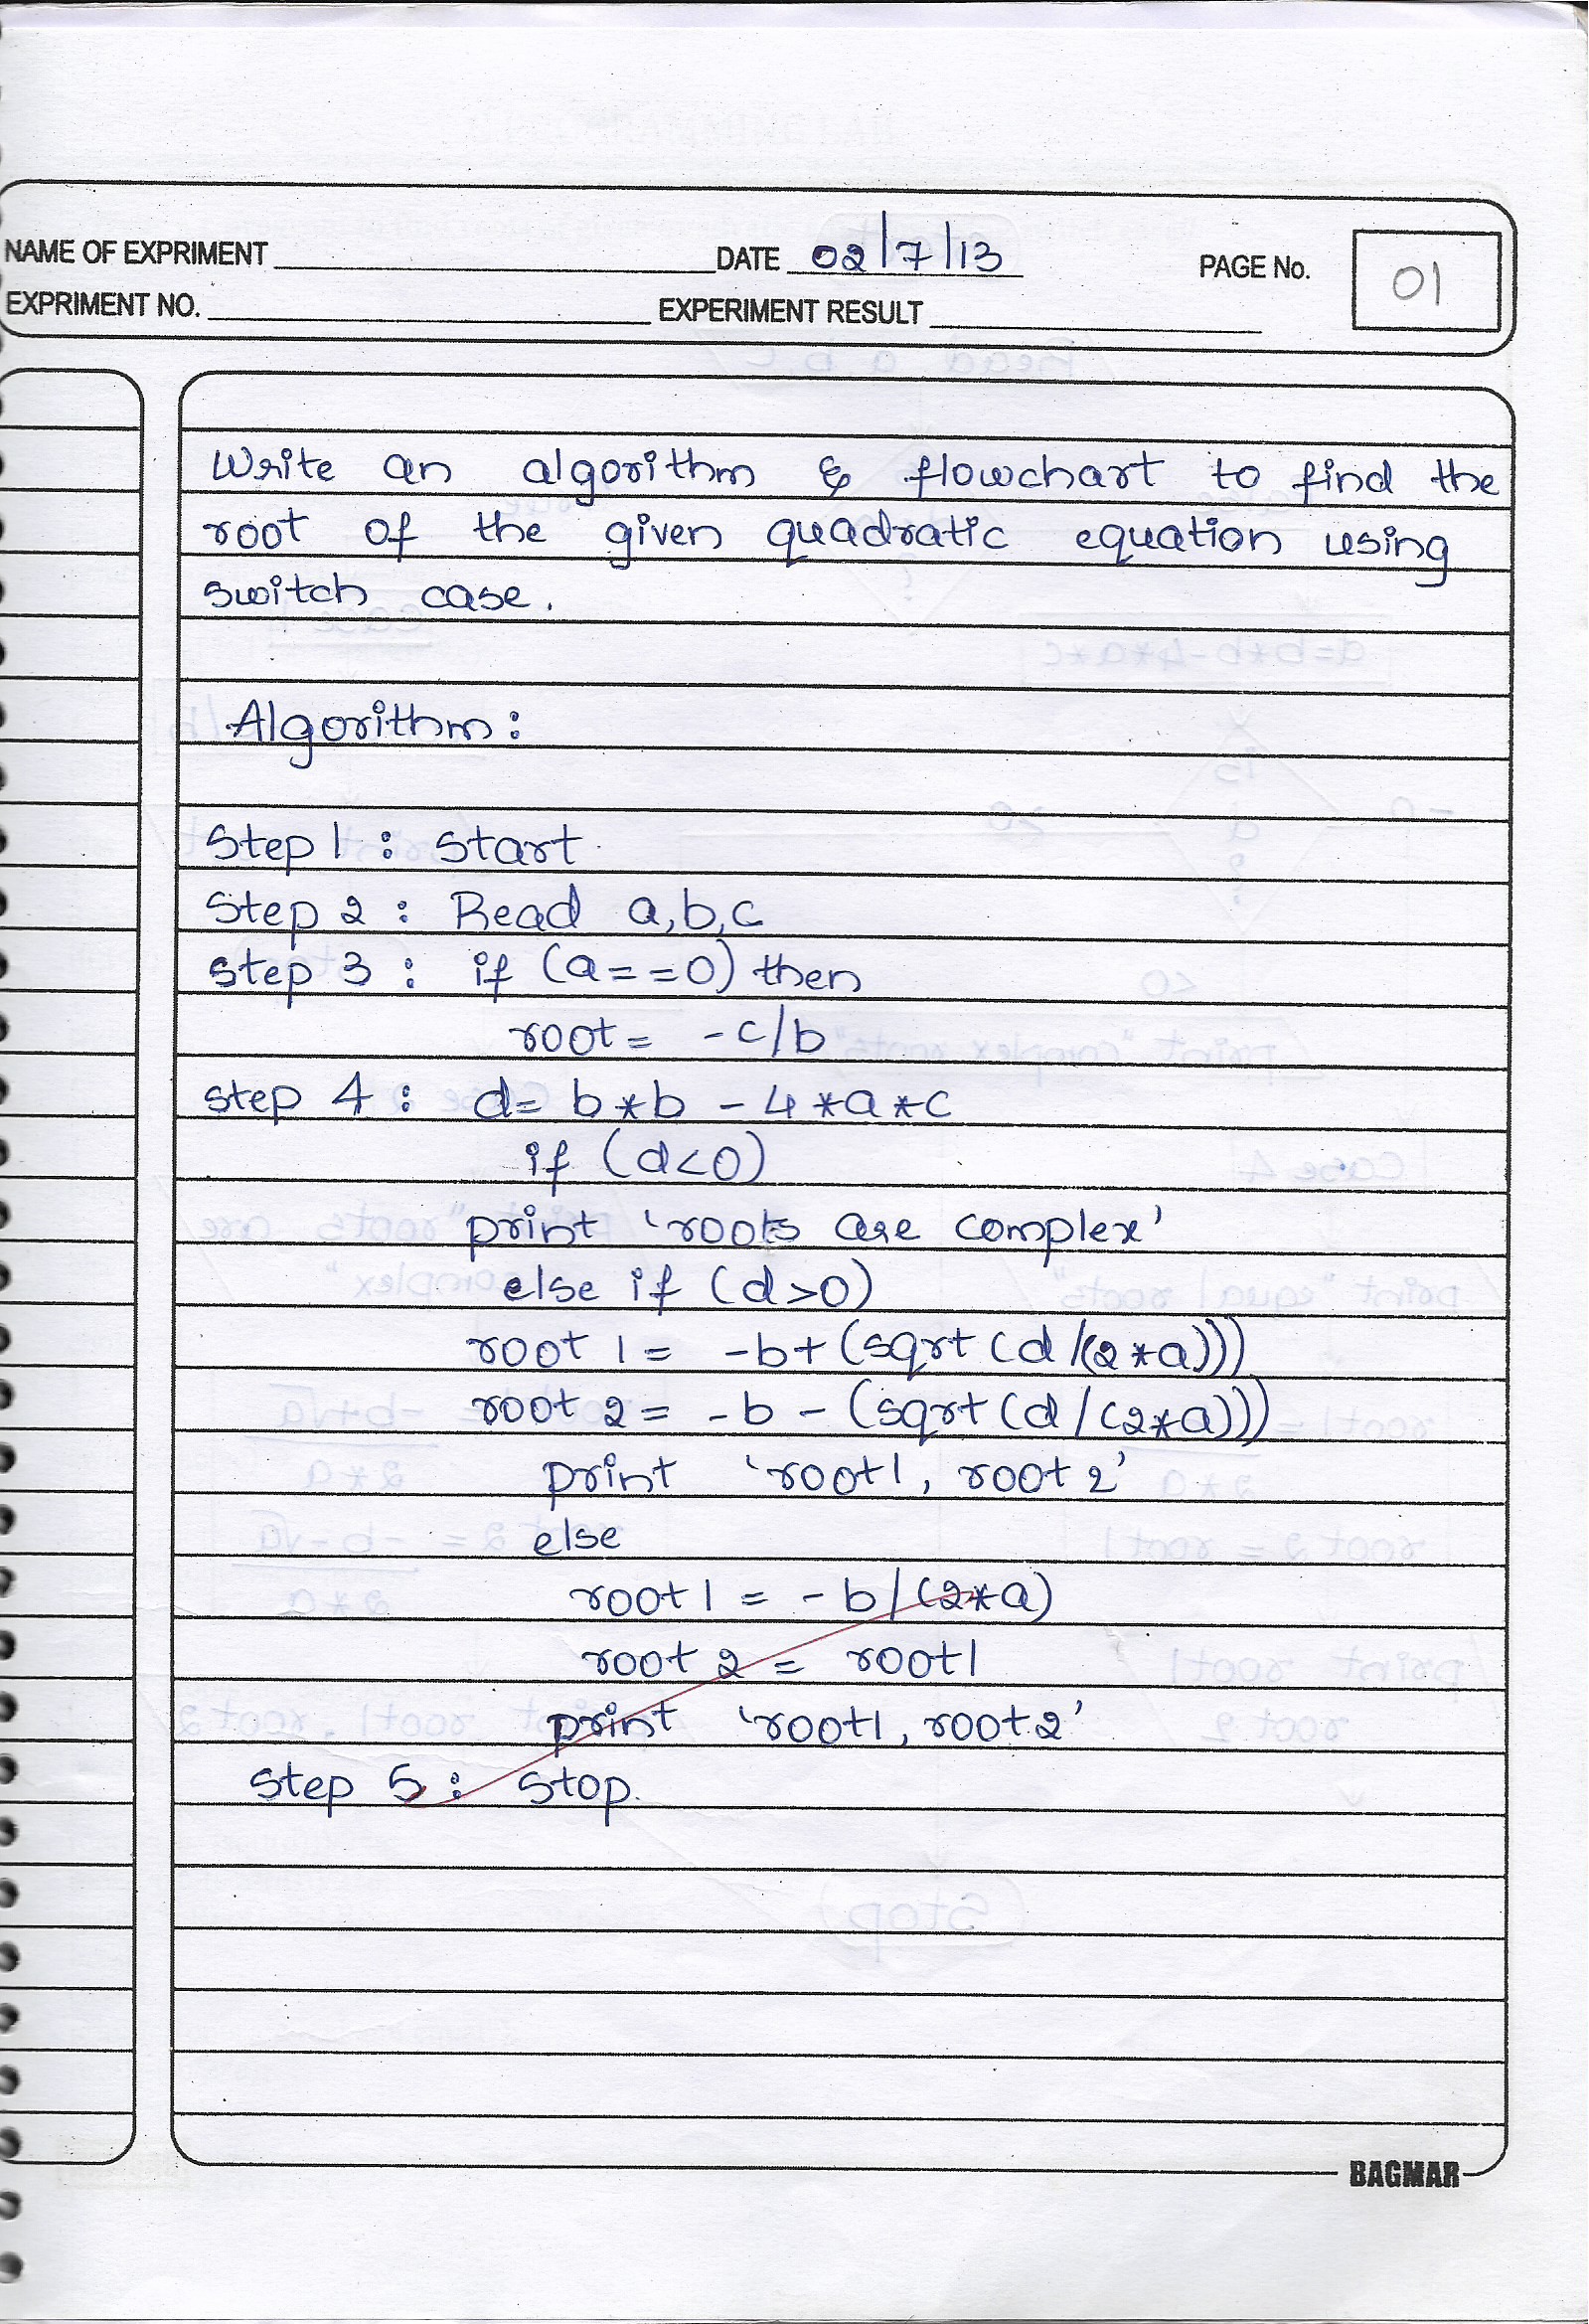 NAME OF EXPRIMENT DATE 02/7/13 PAGE No. 01
EXPRIMENT NO. EXPERIMENT RESULT
Write an algorithm & flowchart to find the
root of the given quadratic equation using
switch case.
Algorithm:
Step 1 : Start
Step 2 : Read a,b,c
step 3 : if (a==0) then
root = -c/b
step 4 : d= b*b - 4*a*c
if (d<0)
print 'roots are complex'
else if (d>0)
root 1 = -b+(sqrt(d/(2*a)))
root 2 = -b - (sqrt(d/(2*a)))
print 'root1, root2'
else
root1 = -b/(2*a)
root 2 = root1
print 'root1, root2'
Step 5 : Stop.
BAGMAR